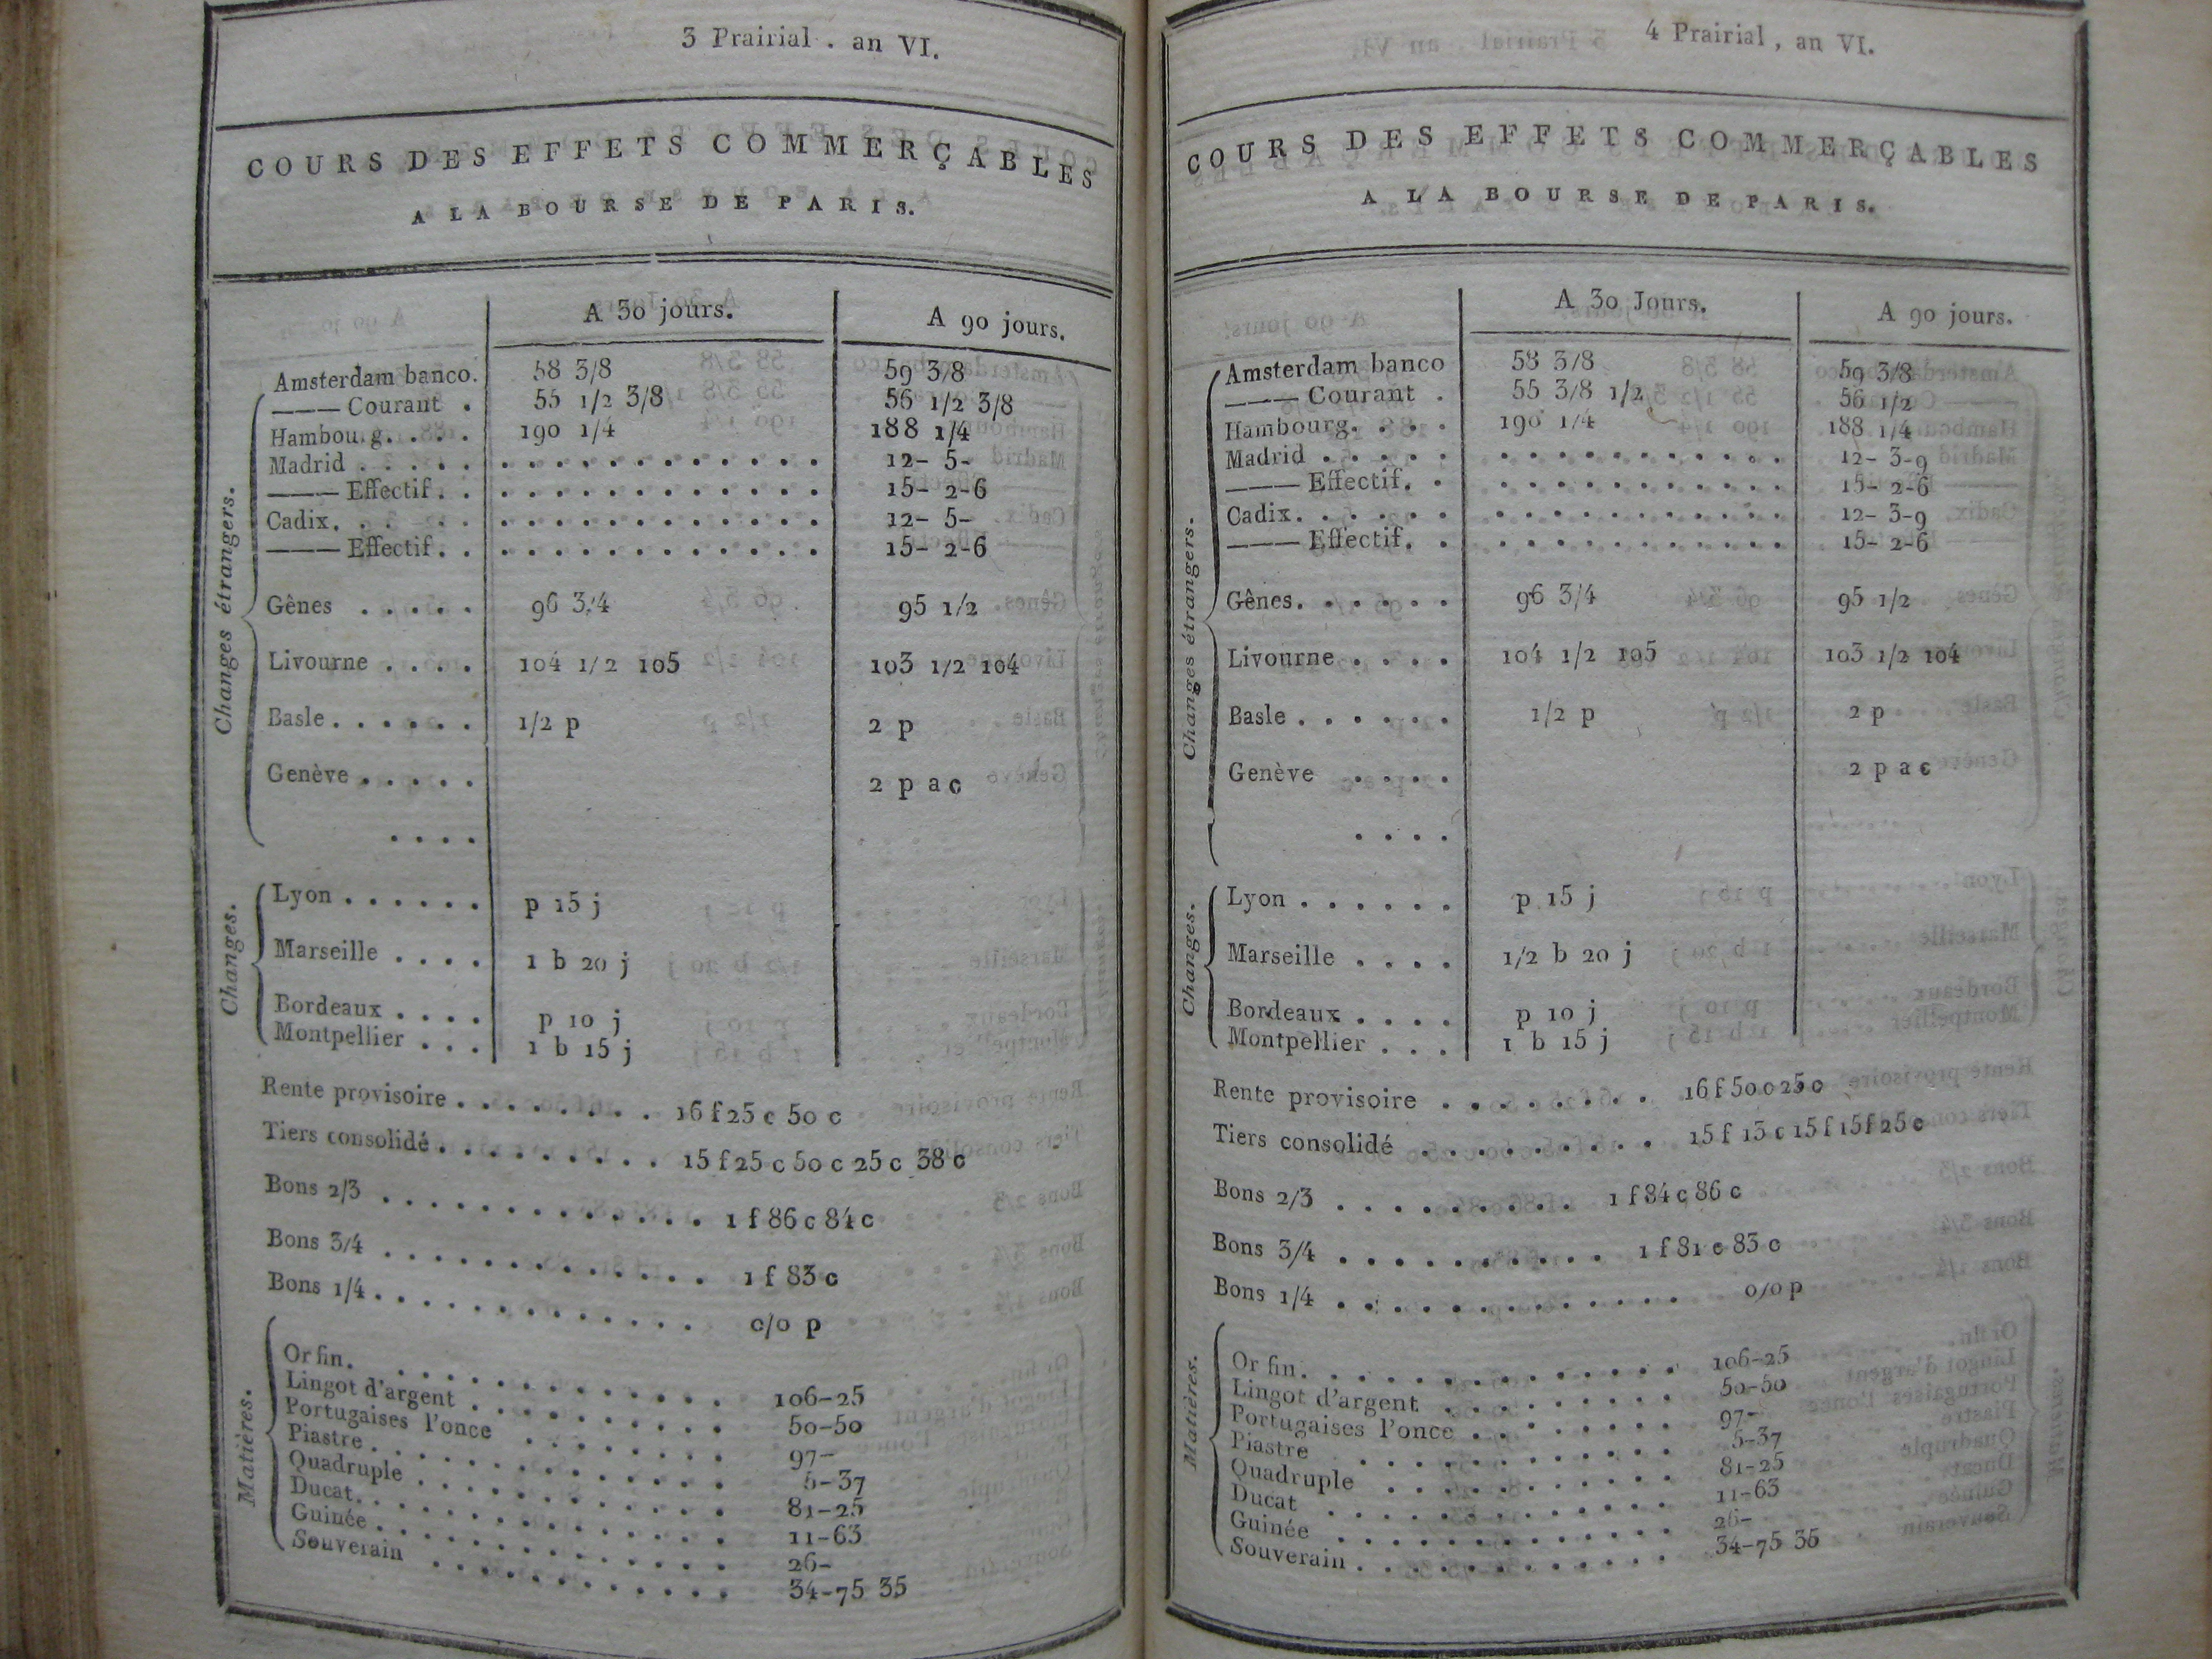 3 Prairial . an VI.
COURS DES EFFETS COMMERÇABLES
A LA BOURSE DE PARIS.
A 30 jours. A 90 jours.
Changes étrangers.
Amsterdam banco. 58 3/8 59 3/8
——— Courant . 55 1/2 3/8 56 1/2 3/8
Hambourg. . . . 190 1/4 188 1/4
Madrid . . . . . . . . . . . . . . . . . 12- 5-
——— Effectif. . . . . . . . . . . . . . 15- 2-6
Cadix. . . . . . . . . . . . . . . . . 12- 5-
——— Effectif. . . . . . . . . . . . . . 15- 2-6
Gênes . . . . . 96 3/4 95 1/2
Livourne . . . . 104 1/2 105 103 1/2 104
Basle . . . . . . 1/2 p 2 p
Genève . . . . . 2 p a c
. . . .
Changes.
Lyon . . . . . . p 15 j
Marseille . . . . 1 b 20 j
Bordeaux . . . . p 10 j
Montpellier . . . 1 b 15 j
Rente provisoire . . . . . . . . 16 f 25 c 50 c
Tiers consolidé . . . . . . . . . 15 f 25 c 50 c 25 c 38 c
Bons 2/3 . . . . . . . . . . . . . 1 f 86 c 84 c
Bons 3/4 . . . . . . . . . . . . . 1 f 83 c
Bons 1/4 . . . . . . . . . . . . . 0/0 p
Matières.
Or fin. . . . . . . . . . . . . 106-25
Lingot d'argent . . . . . . . . . . 50-50
Portugaises l'once . . . . . . . . 97-
Piastre . . . . . . . . . . . . . 5-37
Quadruple . . . . . . . . . . . . 81-25
Ducat. . . . . . . . . . . . . . 11-63
Guinée . . . . . . . . . . . . . 26-
Souverain . . . . . . . . . . . . 34-75 35
4 Prairial , an VI.
COURS DES EFFETS COMMERÇABLES
A LA BOURSE DE PARIS.
A 30 Jours. A 90 jours.
Changes étrangers.
Amsterdam banco 58 3/8 59 3/8
——— Courant . 55 3/8 1/2 56 1/2
Hambourg. . . . 190 1/4 188 1/4
Madrid . . . . . . . . . . . . . . . . 12- 3-9
——— Effectif. . . . . . . . . . . . . 15- 2-6
Cadix. . . . . . . . . . . . . . . . . 12- 3-9
——— Effectif. . . . . . . . . . . . . 15- 2-6
Gênes. . . . . . 96 3/4 95 1/2
Livourne . . . . 104 1/2 105 103 1/2 104
Basle . . . . . . 1/2 p 2 p
Genève . . . . 2 p a c
. . . .
Changes.
Lyon . . . . . . p 15 j
Marseille . . . . 1/2 b 20 j
Bordeaux . . . . p 10 j
Montpellier . . . 1 b 15 j
Rente provisoire . . . . . . . . 16 f 50 c 25 c
Tiers consolidé . . . . . . . . . 15 f 13 c 15 f 15 f 25 c
Bons 2/3 . . . . . . . . . . 1 f 84 c 86 c
Bons 3/4 . . . . . . . . . . 1 f 81 c 83 c
Bons 1/4 . . . . . . . . . . . . . 0/0 p
Matières.
Or fin. . . . . . . . . . . . . 106-25
Lingot d'argent . . . . . . . . . 50-50
Portugaises l'once . . . . . . . . 97-
Piastre . . . . . . . . . . . . 5-37
Quadruple . . . . . . . . . . . 81-25
Ducat . . . . . . . . . . . . . 11-63
Guinée . . . . . . . . . . . . 26-
Souverain . . . . . . . . . . . . 34-75 35